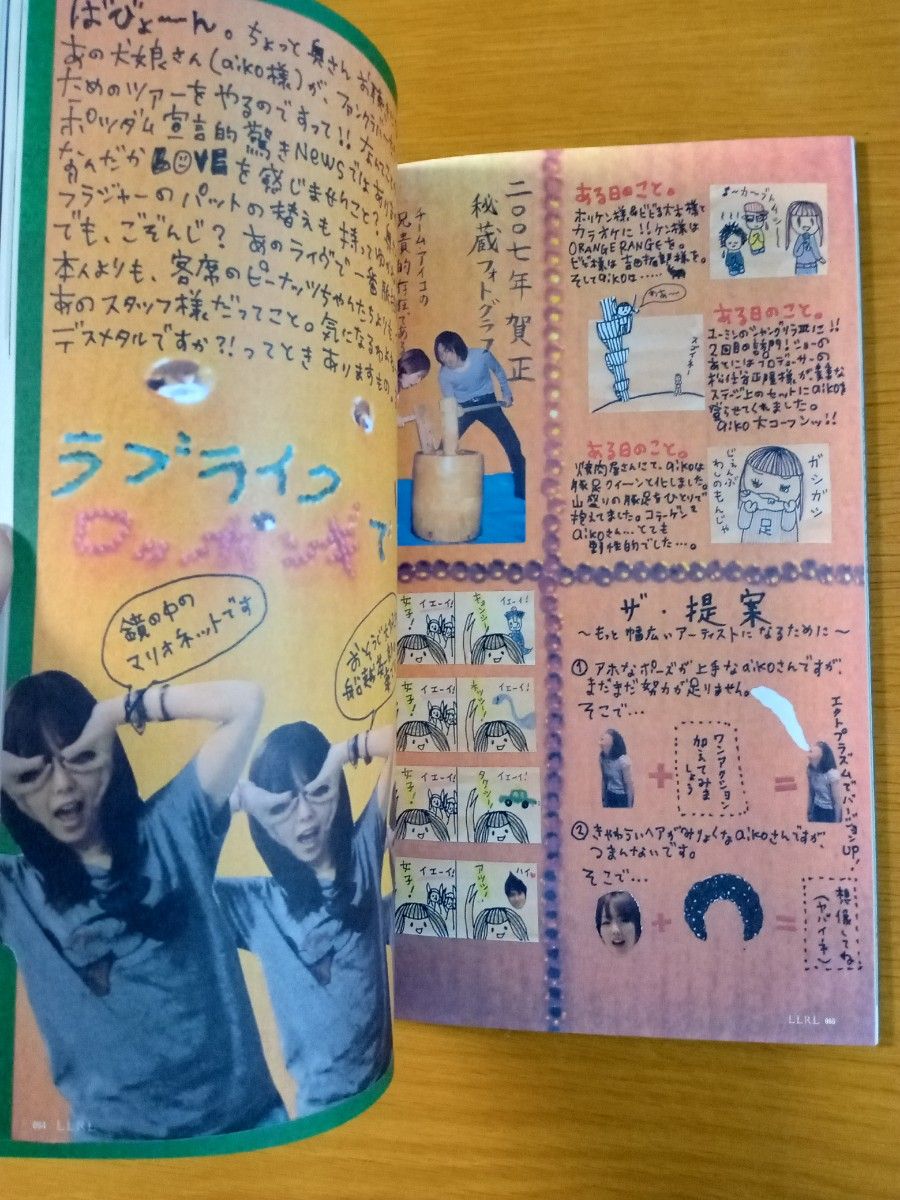 ばびょーん。ちょっと奥さん
あの犬娘さん(aiko様)が、ファンクラブ
ためのツアーをやるのですって!!
ポツダム宣言的驚きNewsでは
なんだかLOVEを感じませんこと?
ブラジャーのパットの替えも持って
でも、ごぞんじ?あのライヴで一番
本人よりも、客席のピーナッツちゃんたちよりも
あのスタッフ様だってこと。気になる
デスメタルですか?!ってときありますもの
ラブライク
ロッ
鏡の中の
マリオネットです
おとうさ
船越
084 LLRL
二〇〇七年賀正
秘蔵フォトグラフ
チームアイコの
兄貴的存在である
ある日のこと。
ホリケン様&ビビる大木様と
カラオケに!!ケン様は
ORANGE RANGEを。
ビビ様は吉田拓郎様を。
そしてaikoは……
ある日のこと。
ユーミンのシャングリラⅢに!!
2回目の訪問!ショーの
あとにはプロデューサーの
松任谷正隆様が、貴重な
ステージ上のセットにaikoを
登らせてくれました。
aiko大コーフンッ!!
わあ〜
スゴイネー
ある日のこと。
焼肉屋さんにて。aikoは
豚足クイーンと化しました。
山盛りの豚足をひとりで
抱えてました。コラーゲンを
aikoさん…とても
野性的でした…。
ガシガシ
じぇんぶ
わしのもんじゃ
足
女子!
イエーイ!
キョンシー!
イエーイ!
女子!
イエーイ!
キッシー!
イエーイ!
女子!
イエーイ!
タクシー!
イエーイ!
女子!
イエーイ!
アツシ!
ハイ
ザ・提案
〜もっと幅広いアーティストになるために〜
①アホなポーズが上手なaikoさんですが、
まだまだ努力が足りません。
そこで…
+
ワンアクション
加えてみま
しょう
=
エクトプラズムでバージョンUP!
②きゃわういヘアがみりょくなaikoさんですが
つまんないです。
そこで…
+
=
想像してね
(ヤバイネ)
LLRL 085